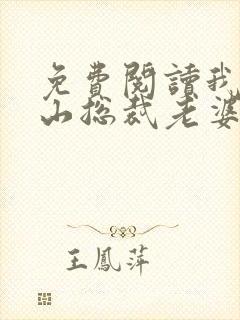 免費閱讀我
山总裁老婆
王鳳萍